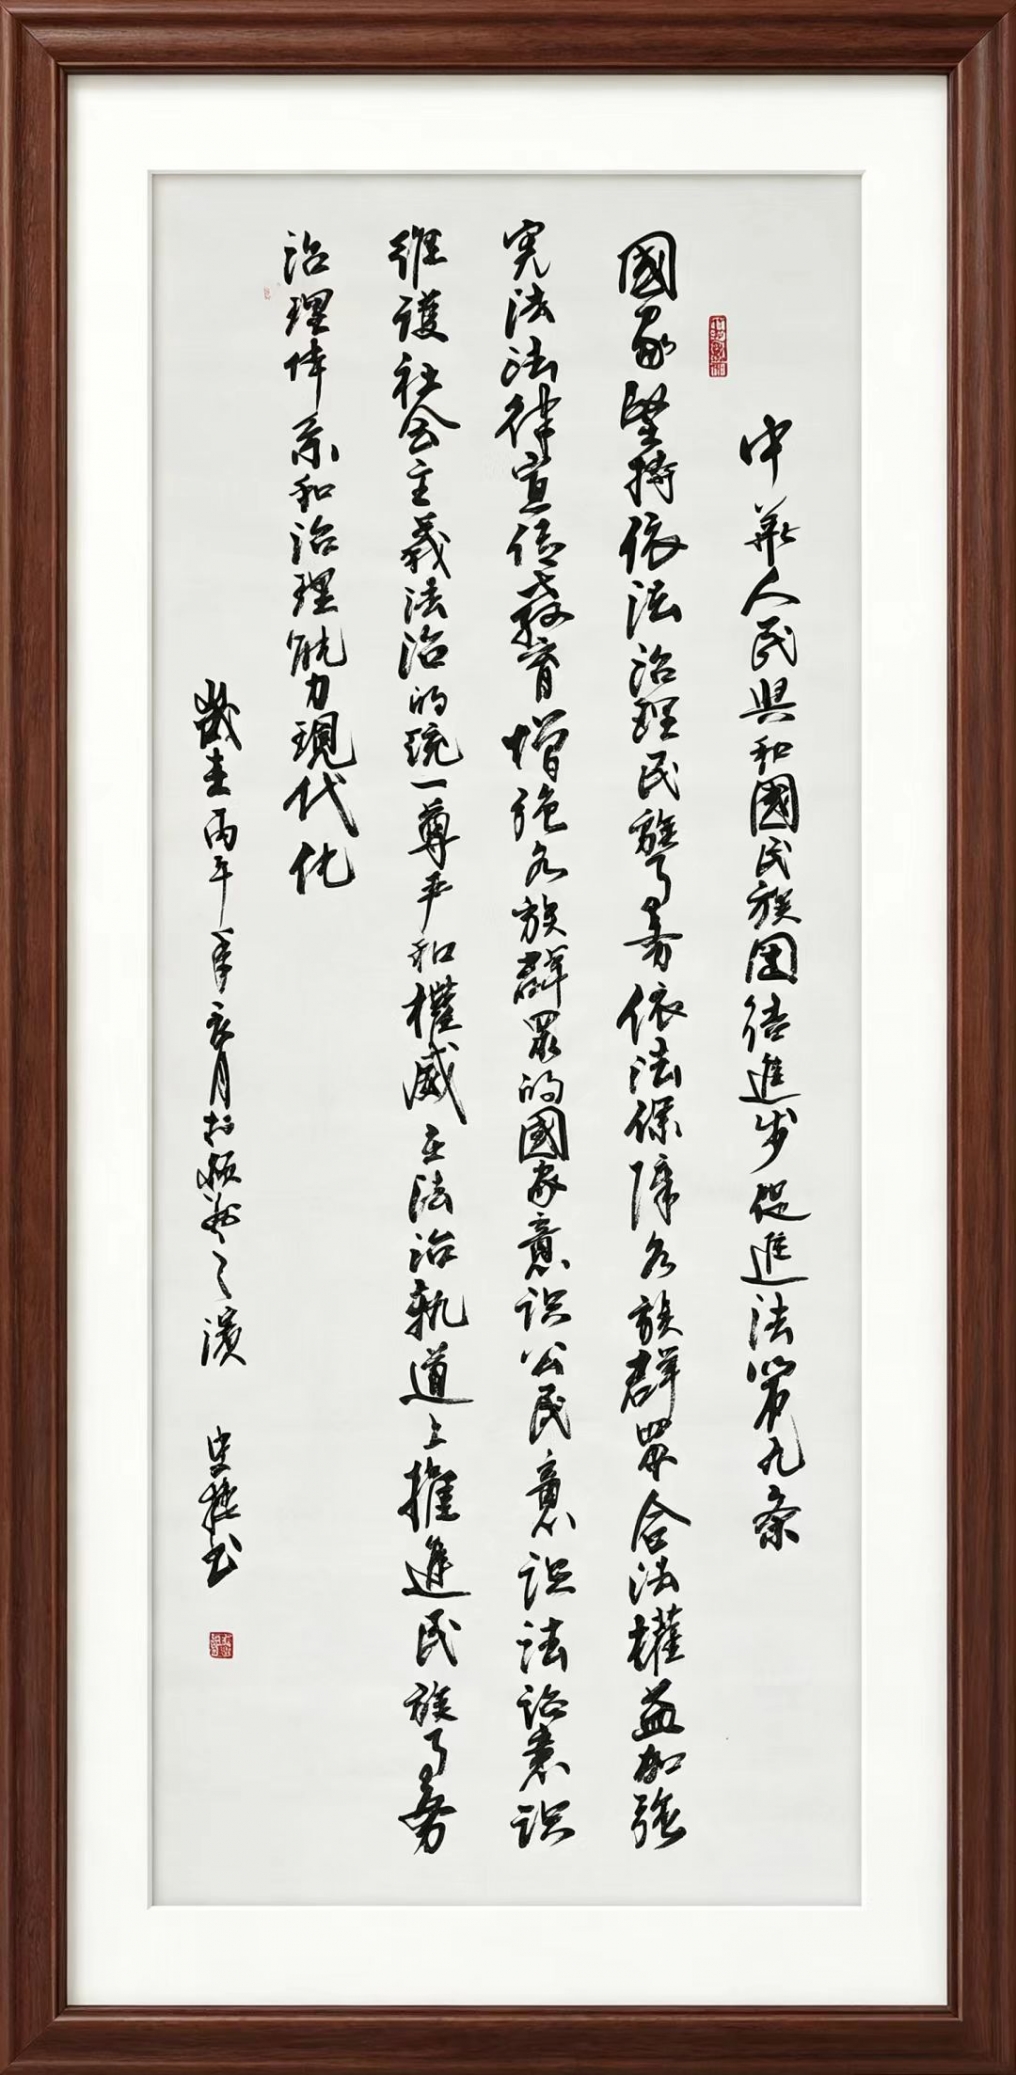 中華人民共和國民族团结進步促進法第九条
國家堅持依法治理民族事务依法保障各族群眾合法權益加强
宪法法律宣传教育增强各族群眾的國家意识公民意识法治意识
維護社会主義法治的统一尊严和權威在法治軌道上推進民族事务
治理体系和治理能力現代化
歲在丙午年 月於 之濱 史 书